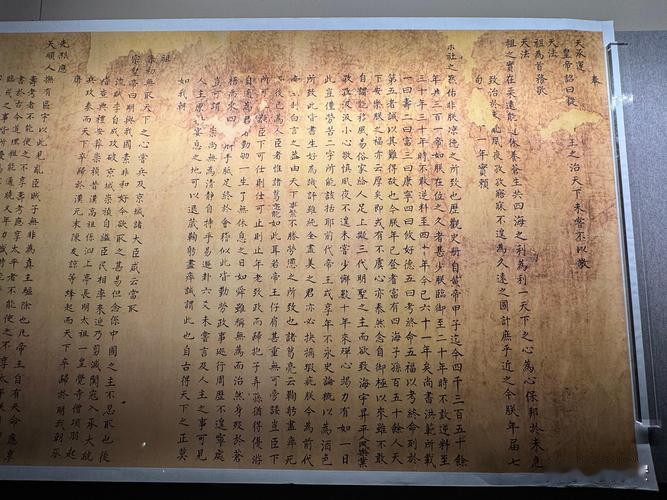 奉
天承運
皇帝詔曰從 王之治天下未嘗不以敬
天法
祖為首務敬
天法
祖之實在柔遠能邇休養蒼生共四海之利為利一天下之心為心保邦於未危
致治於未亂夙夜孜孜寤寐不遑為久遠之國計庶乎近之今朕年屆七
旬 一年實賴
社之默佑非朕涼德之所致也歷觀史冊自黃帝甲子迄今四千三百五十餘
年共三百一帝如朕在位之久者甚少朕臨御至二十年時不敢逆料至
三十年三十年時不敢逆料至四十年今已六十一年矣尚書洪範所載
一曰壽二曰富三曰康寧四曰攸好德五曰考終命五福以考終命列於
第五者誠以其難得故也今朕年已登耆富有四海子孫百五十餘人天
下安樂朕之福亦云厚矣即或有不虞心亦泰然念自御極以來雖不敢
自謂能移風易俗家給人足上擬三代明聖之主而欲致海宇昇平人民樂業
孜孜汲汲小心敬慎夙夜不遑未嘗少懈數十年來殫心竭力有如一日
此豈僅勞苦二字所能該括耶前代帝王或享年不永史論概以為酒色
所致此皆書生好為譏評雖純全盡美之君亦必抉摘瑕疵朕今為前代
剖白言之蓋由天下事繁不勝勞憊之所致也諸葛亮云鞠躬盡瘁死
後已為人臣者惟諸葛亮能如此耳若帝王仔肩甚重無可旁諉豈臣下
所可 臣下可仕則仕可止則止年老致政而歸抱子弄孫猶得優游
自適為君 勤劬一生了無休息之日如舜雖稱無為而治然身歿於蒼
梧禹乘四 胼手胝足終於會稽似此皆勤勞政事巡行周歷不遑寧處
豈可謂 崇尚無為清靜自持乎易遯卦六爻未嘗言及人主之事可見
人主原無宴息之地可以退藏鞠躬盡瘁誠謂此也自古得天下之正莫
如我朝
祖
初無取天下之心嘗兵及京城諸大臣咸云當取
宗皇帝曰明與我國素非和好今欲取之甚易但念係中國之主不忍取也後
流賊李自成攻破京城崇禎自縊臣民相率來迎乃剪滅闖寇入承大統
稽查典禮安葬崇禎昔漢高祖係泗上亭長明太祖一皇覺寺僧項羽起
兵攻秦而天下卒歸於漢元末陳友諒等蜂起而天下卒歸於明我朝承
先烈應
天順人撫有區宇以此見亂臣賊子無非為真王驅除也凡帝王自有天命應享
壽考者不能使之不享壽考應享太平者不能使之不享太平朕自